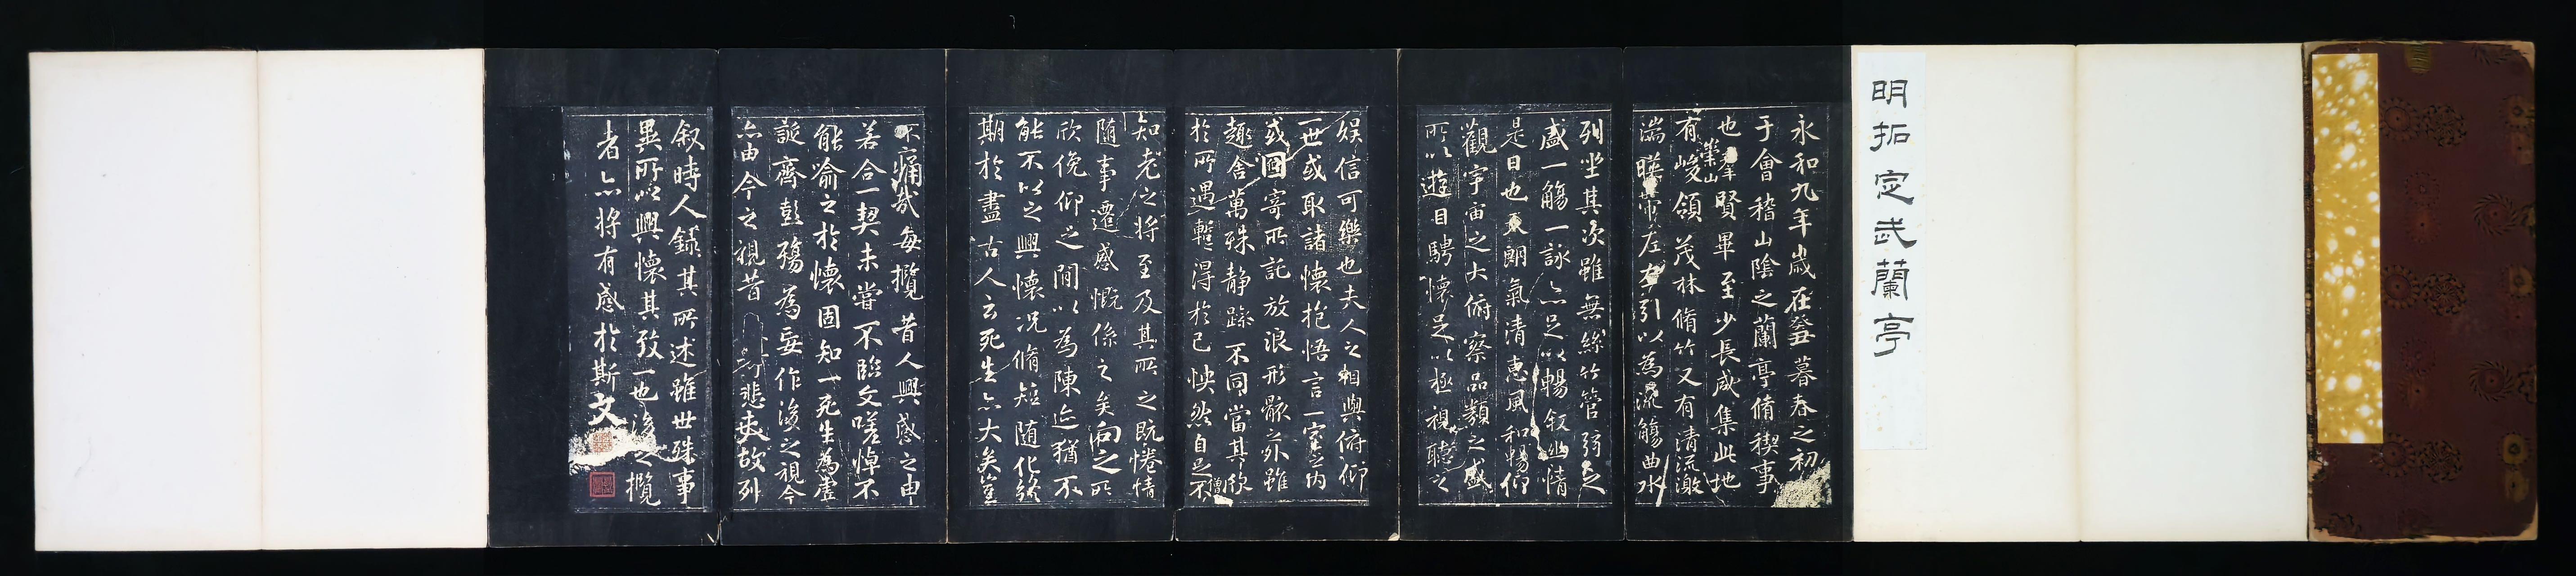 明拓定武蘭亭
永和九年歲在癸丑暮春之初
于會稽山陰之蘭亭脩稧事
也羣賢畢至少長咸集此地
有崇山峻領茂林脩竹又有清流激
湍暎帶左右引以為流觴曲水
列坐其次雖無絲竹管弦之
盛一觴一詠亦足以暢叙幽情
是日也天朗氣清惠風和暢仰
觀宇宙之大俯察品類之盛
所以遊目騁懷足以極視聽之
娛信可樂也夫人之相與俯仰
一世或取諸懷抱悟言一室之內
或因寄所託放浪形骸之外雖
趣舍萬殊靜躁不同當其欣
於所遇暫得於己怏然自足不
僧
知老之將至及其所之既惓情
隨事遷感慨係之矣向之所
欣俛仰之間以為陳迹猶不
能不以之興懷況脩短隨化終
期於盡古人云死生亦大矣豈
不痛哉每攬昔人興感之由
若合一契未嘗不臨文嗟悼不
能喻之於懷固知一死生為虛
誕齊彭殤為妄作後之視今
亦由今之視昔悲夫故列
叙時人錄其所述雖世殊事
異所以興懷其致一也後之攬
者亦將有感於斯文